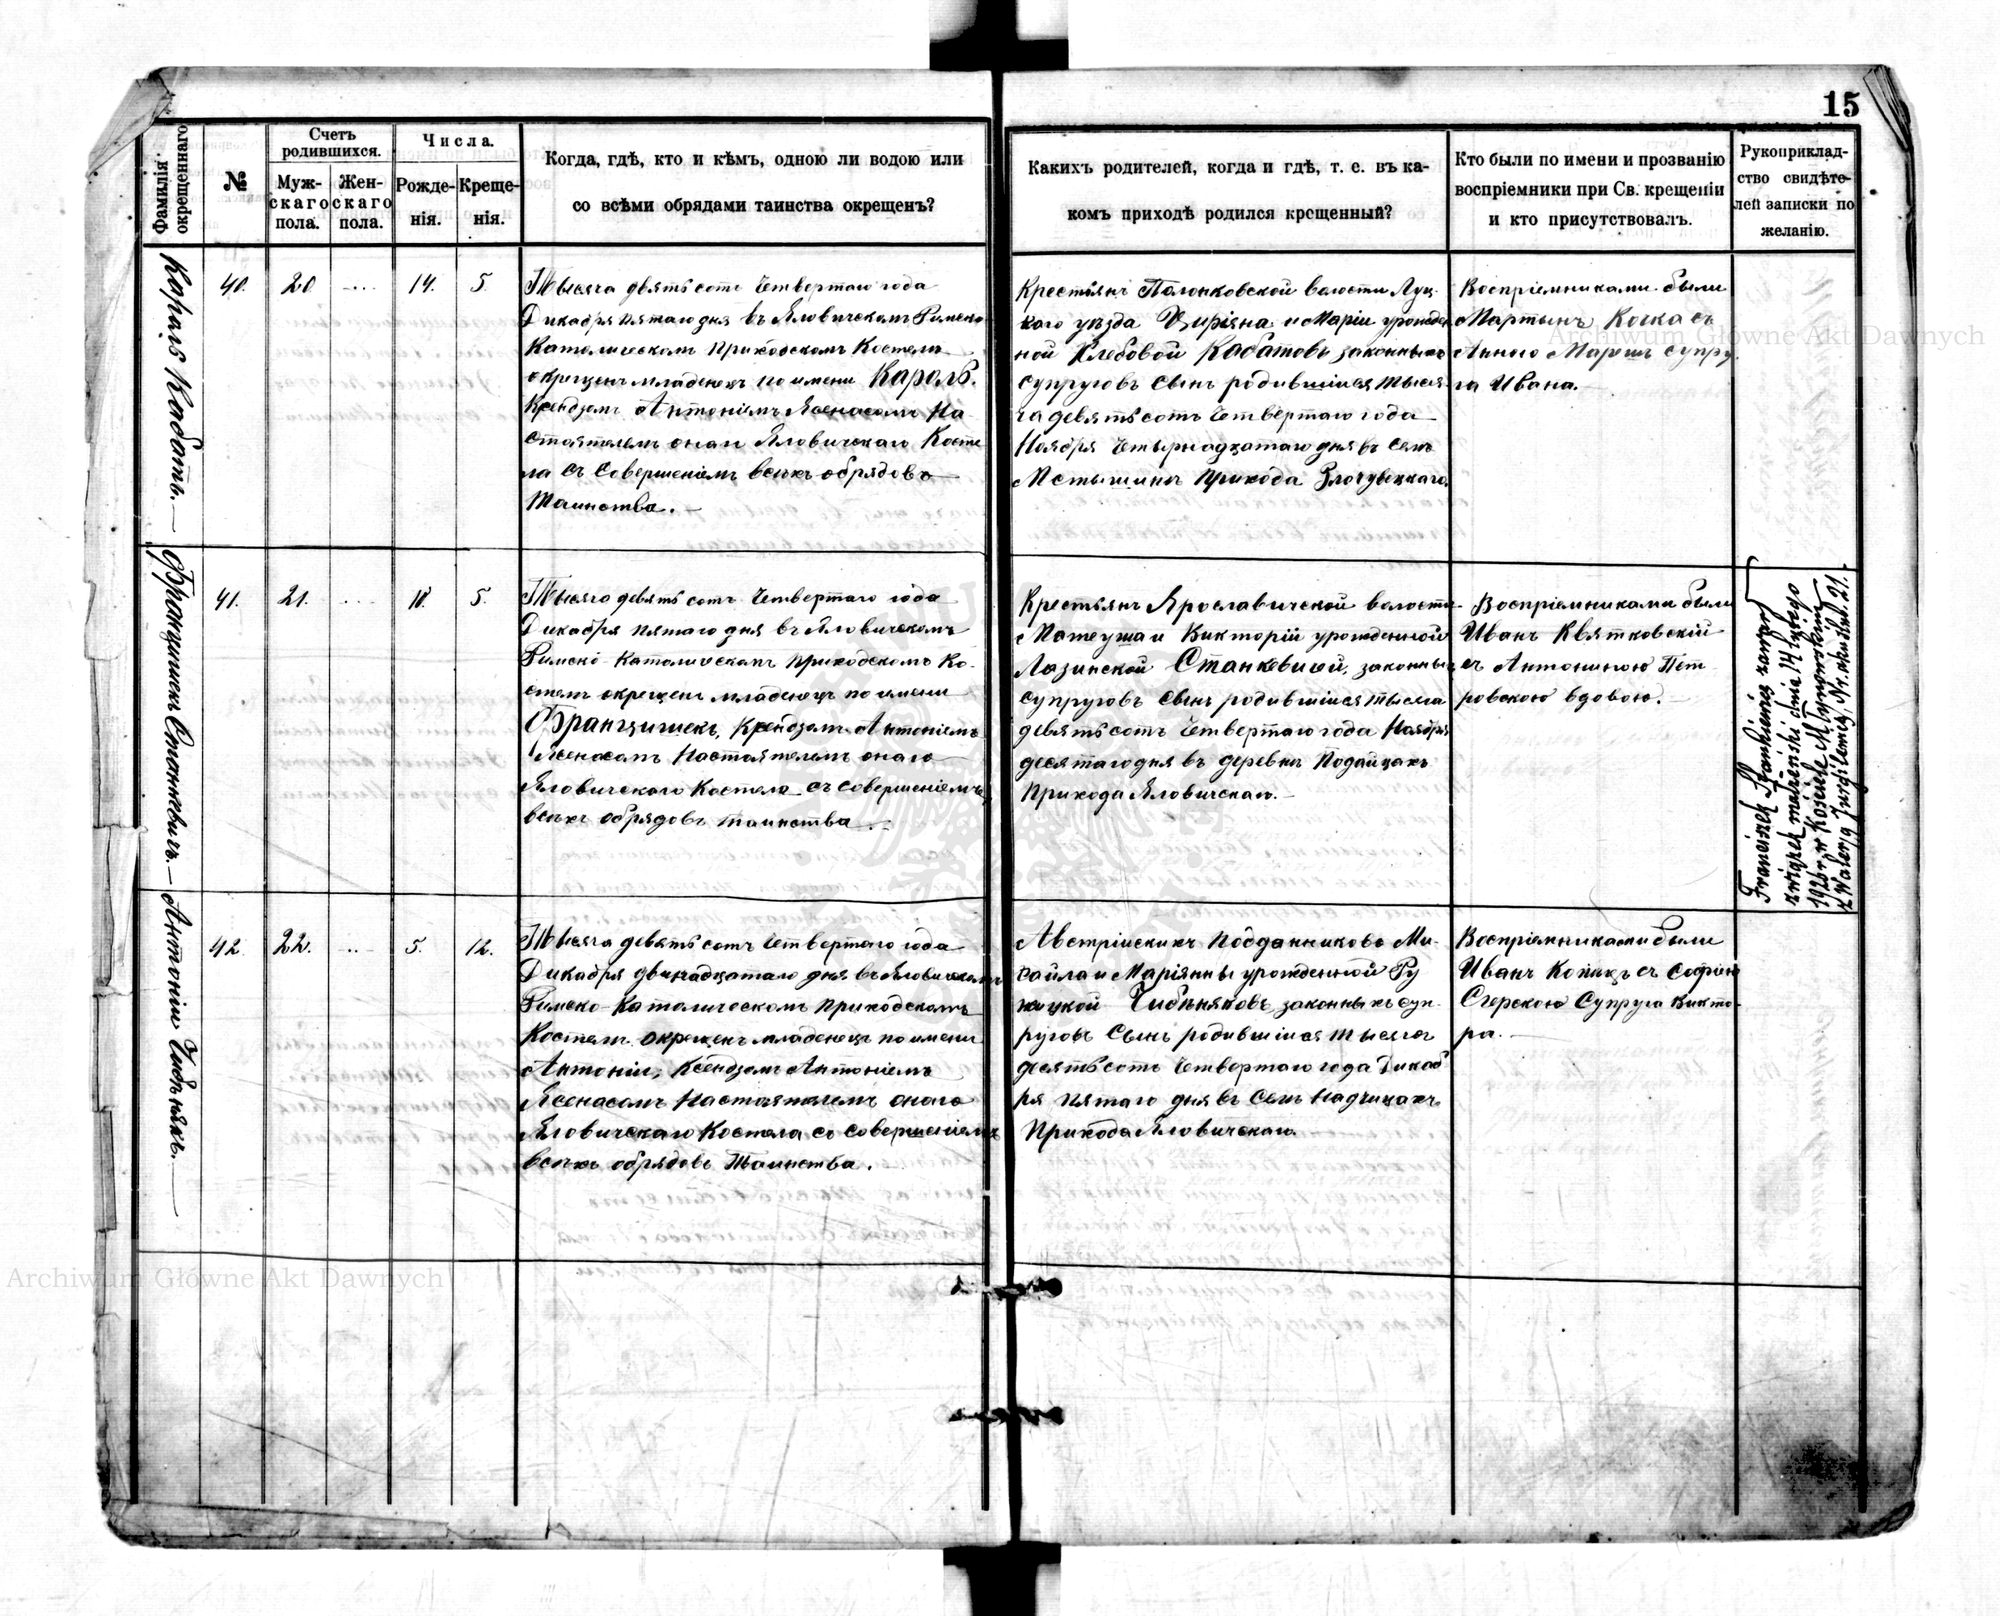 15
Фамилія окрещеннаго
№
Счетъ родившихся.
Мужскаго пола.
Женскаго пола.
Числа.
Рожденія.
Крещенія.
Когда, гдѣ, кто и кѣмъ, одною ли водою или
со всѣми обрядами таинства окрещенъ?
Какихъ родителей, когда и гдѣ, т. е. въ ка-
комъ приходѣ родился крещенный?
Кто были по имени и прозванію
воспріемники при Св. крещеніи
и кто присутствовалъ.
Рукоприклад-
ство свидѣте-
лей записки по
желанію.
Кароль Кабатъ.
40. 20 .... 14. 5.
Тысяча двятьсотъ Четвертаго года
Дикабря пятаго дня въ Яловичскомъ Римско-
Католическомъ приходскомъ Костелѣ
окрещенъ младенецъ по имени Кароль.
Ксендзомъ Антоніемъ Ясенасомъ На-
стоятелемъ онаго Яловичскаго Косте
ла съ Совершеніемъ всѣхъ обрядовъ
Таинства.
Крестьянъ Полонковской волости Луц-
каго уѣзда и Маріи урожден
ной Хлебовой Кабатовъ законныхъ
супруговъ Сынъ родившійся тыся
ча девятьсотъ Четвертаго года
Ноября Четырнадцатаго дня въ Селѣ
прихода
Воспріемниками были
Мартынъ съ
Анною супру
га Ивана.
Францишекъ Станкевичъ.
41. 21. .... 10. 5.
Тысяча девятьсотъ Четвертаго года
Дикабря пятаго дня въ Яловичскомъ
Римско-Католическомъ приходскомъ Ко-
стелѣ окрещенъ младенецъ по имени
Францишекъ, Ксендзомъ Антоніемъ
Ясенасомъ Настоятелемъ онаго
Яловичскаго Костела съ совершеніемъ
всѣхъ обрядовъ таинства.
Крестьянъ Ярославичской волости
Матеуша и Викторіи урожденной
Лозинской Станкевичей, законныхъ
супруговъ сынъ родившійся тысяча
девятьсотъ Четвертаго года Ноября
десятаго дня въ деревнѣ Подайцахъ
Прихода Яловичскаго.
Воспріемниками были
Иванъ Квятковскій
съ Антониною Пет-
ровскою вдовою.
Franciszek Stankiewicz zawarł
związek małżeński dnia 14 lutego
1926 r. w Kościele Młynowskim
z Walerją Jurgilewicz, Nr. aktu ślub. 21.
Антоній Чибѣнякъ.
42. 22. ... 5. 12.
Тысяча девятьсотъ Четвертаго года
Дикабря двѣнадцатаго дня въ Яловичскомъ
Римско-Католическомъ приходскомъ
Костелѣ окрещенъ младенецъ по имени
Антоній, Ксендзомъ Антоніемъ
Ясенасомъ Настоятелемъ онаго
Яловичскаго Костела съ совершеніемъ
всѣхъ обрядовъ Таинства.
Австрійскихъ подданниковъ Ми-
хайла и Маріянны урожденной Ру
жицкой Чибѣняковъ, законныхъ суп-
руговъ Сынъ родившійся тысяча
десятьсотъ Четвертаго года Дикаб
ря пятаго дня въ Селѣ Надчицахъ
Прихода Яловичскаго.
Воспріемниками были
Иванъ съ Софіею
Супруга Викто-
ра.
Archiwum Główne Akt Dawnych
Archiwum Główne Akt Dawnych